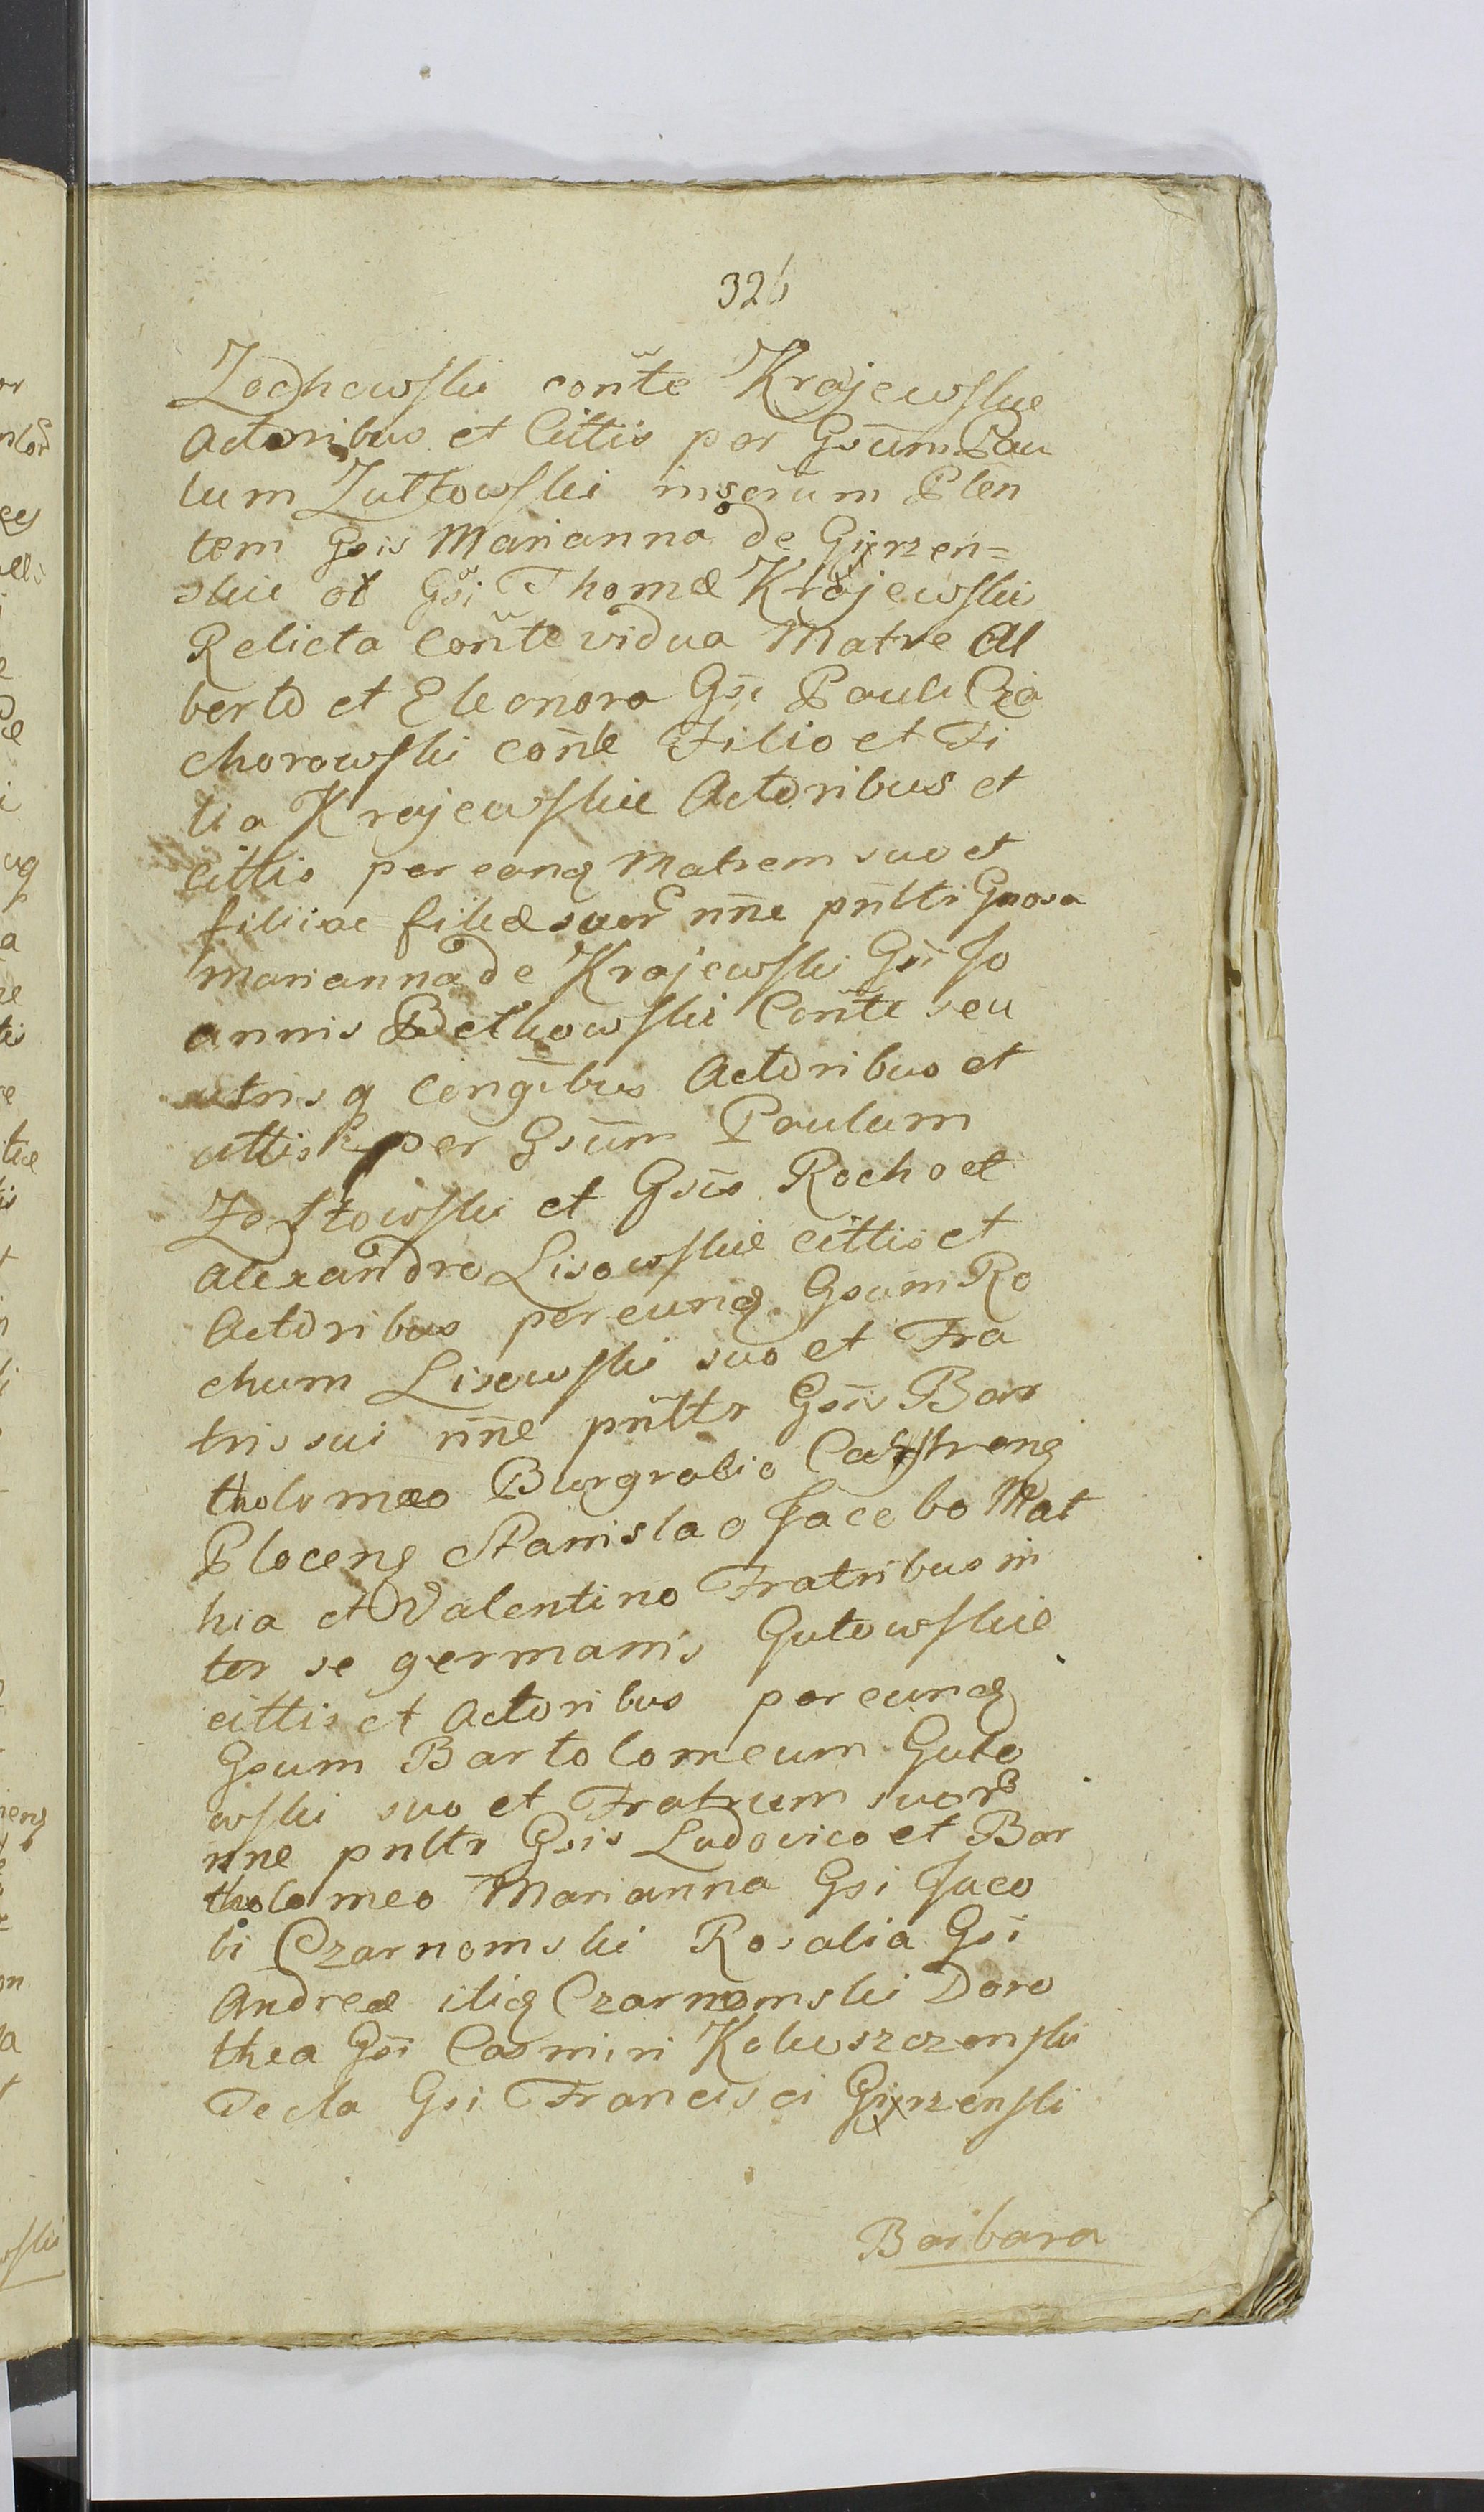 326
Zochowski con̄te Krajewskie
Actoribus et Cittis per Gsūm Pau
lum Zułtowski inscrūm Plen
tem Gsis Marianna de Giżrzen=
skie ol Gsi Thomæ Krajewski
Relicta Con̄te vidua Matre Al
berto et Eleonora Gsi Pauli Cza
chorowski con̄te Filio et Fi
lia Krajewskie Actoribus et
cittis per eanq Matrem suo et
filii ac filiæ suor nn̄e pn̄ltti Gnosa
Marianna de Krajewski Gsi Jo
annis Bełkowski Con̄te seu
utrisq Congibus Actoribus et
cittis per Gsūm Paulum
Zołtowski et Gsis Rocho et
Alexandro Lisowskie cittis et
Actoribus per eunq Gsum Ro
chum Lisowski suo et Fra
tris sui nn̄e pn̄ltr Gsis Bar
tholomæo Burgrabio Castrenq
Plocenq Stanislao Jacobo Mat
hia et Valentino Fratribus in
ter se germanis Gutowskie
cittis et Actoribus per eunq
Gsum Bartolomeum Guto
wski suo et Fratrum suor
nne pnltr Gsis Ludovico et Bar
tholomeo Marianna Gsi Jaco
bi Czarnomski Rosalia Gsi
Andreæ itiq Czarnomski Doro
thea Gsi Casmiri Kokoszczenski
Tecla Gsi Francisci Giżrzenski
Barbara